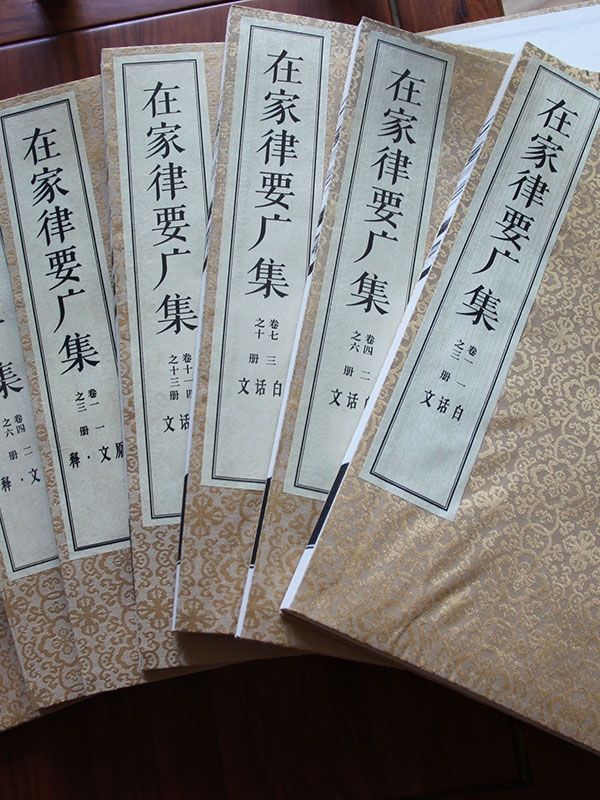 在家律要广集
卷一之三 一册
白话文
在家律要广集
卷四之六 二册
白话文
在家律要广集
卷七之十 三册
白话文
在家律要广集
卷十一之十三 四册
话文
在家律要广集
卷一之三 一册
原文·释
集
卷四之六 二册
文·释